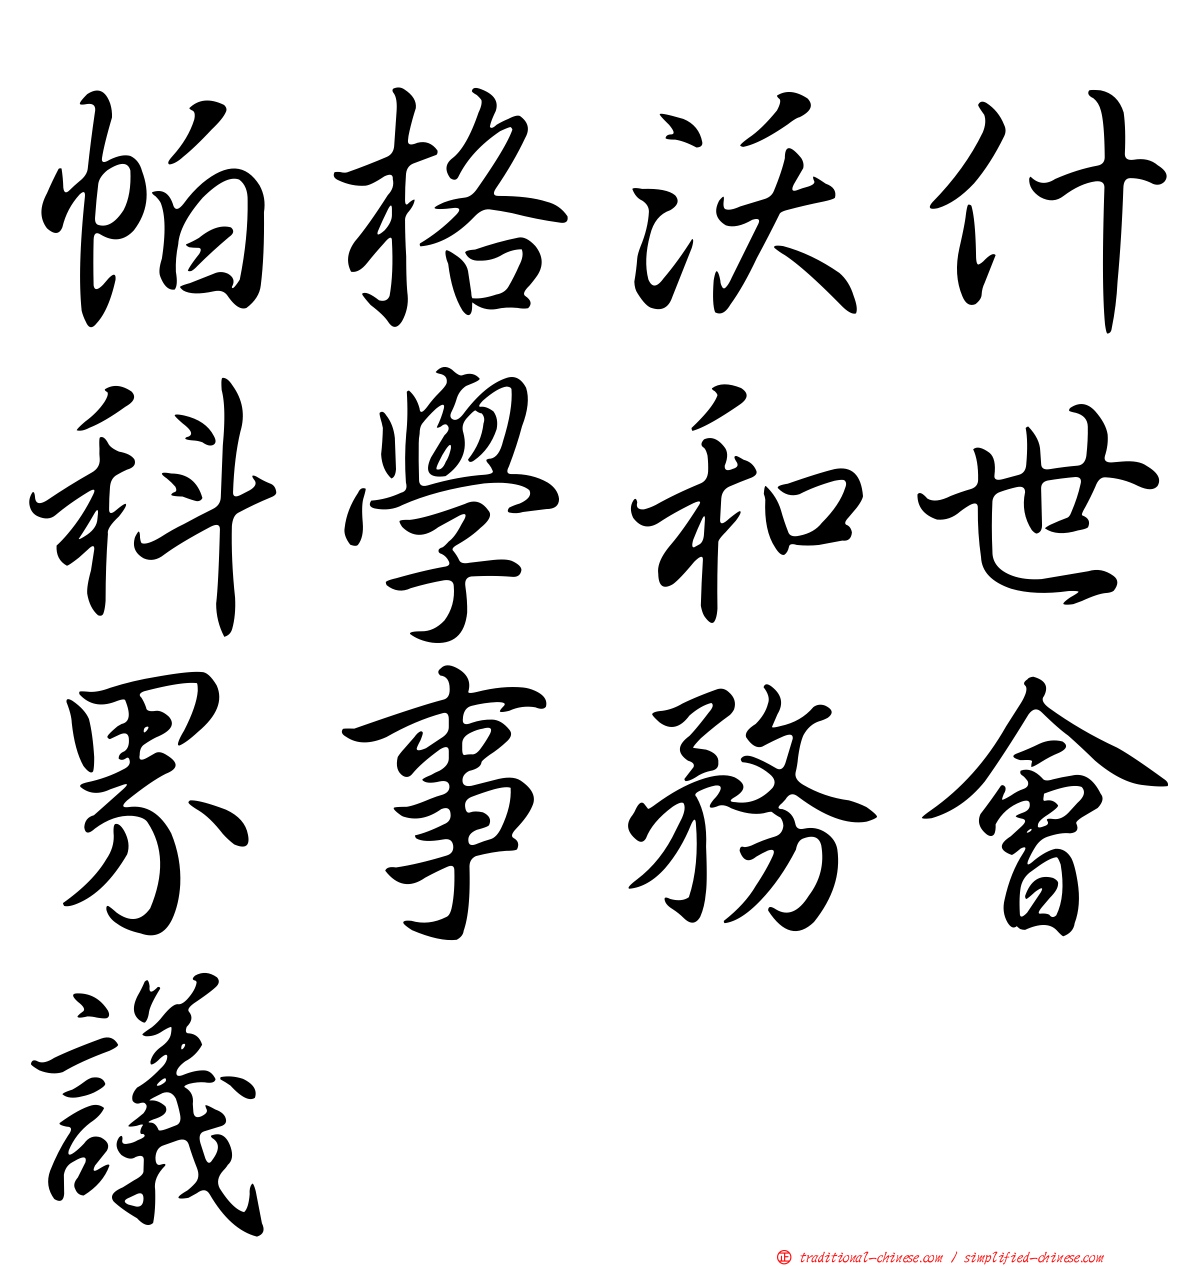 帕格沃什
科學和世
界事務會
議
正 traditional-chinese.com / simplified-chinese.com